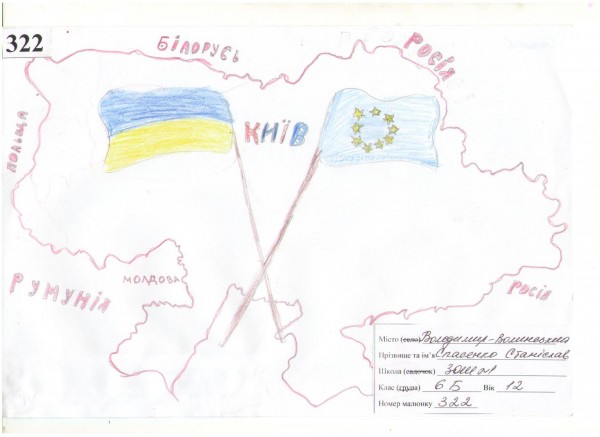 322
БІЛОРУСЬ
РОСІЯ
ПОЛЬЩА
КИЇВ
МОЛДОВА
РУМУНІЯ
РОСІЯ
Місто (село) Володимир-Волинський
Прізвище та ім'я Спасенко Станіслав
Школа (садочок) ЗОШ №1
Клас (група) 6 Б Вік 12
Номер малюнку 322